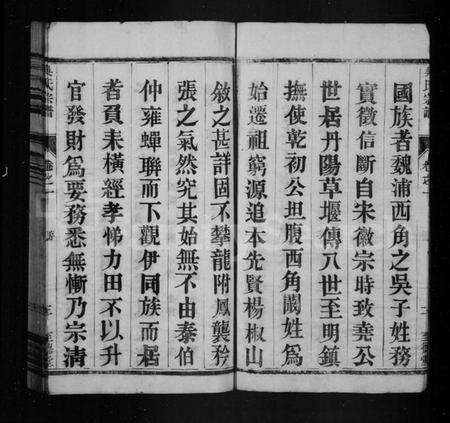 國族者魏浦西角之吳子姓務
實徵信斷自宋徽宗時致堯公
世居丹陽草堰傳八世至明鎮
撫使乾初公坦腹西角閾姓爲
始遷祖窮源追本先賢楊椒山
敘之甚詳固不攀龍附鳳襲矜
張之氣然究其始無不由泰伯
仲雍蟬聯而下觀伊同族而居
者負耒橫經孝悌力田不以升
官發財爲要務悉無慚乃宗清
吳氏宗譜
卷之一